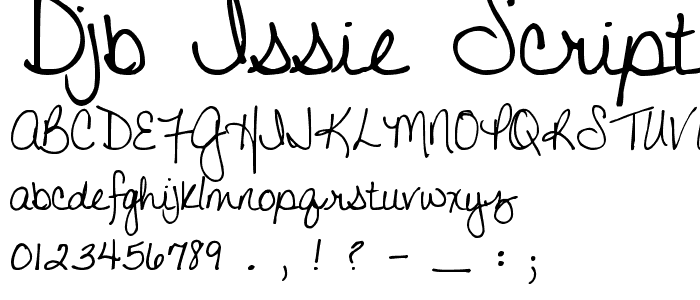 Djb Issie Script
ABCDEFGHIJKLMNOPQRSTUV
abcdefghijklmnopqrstuvwxyz
0123456789 . , ! ? - _ : ;